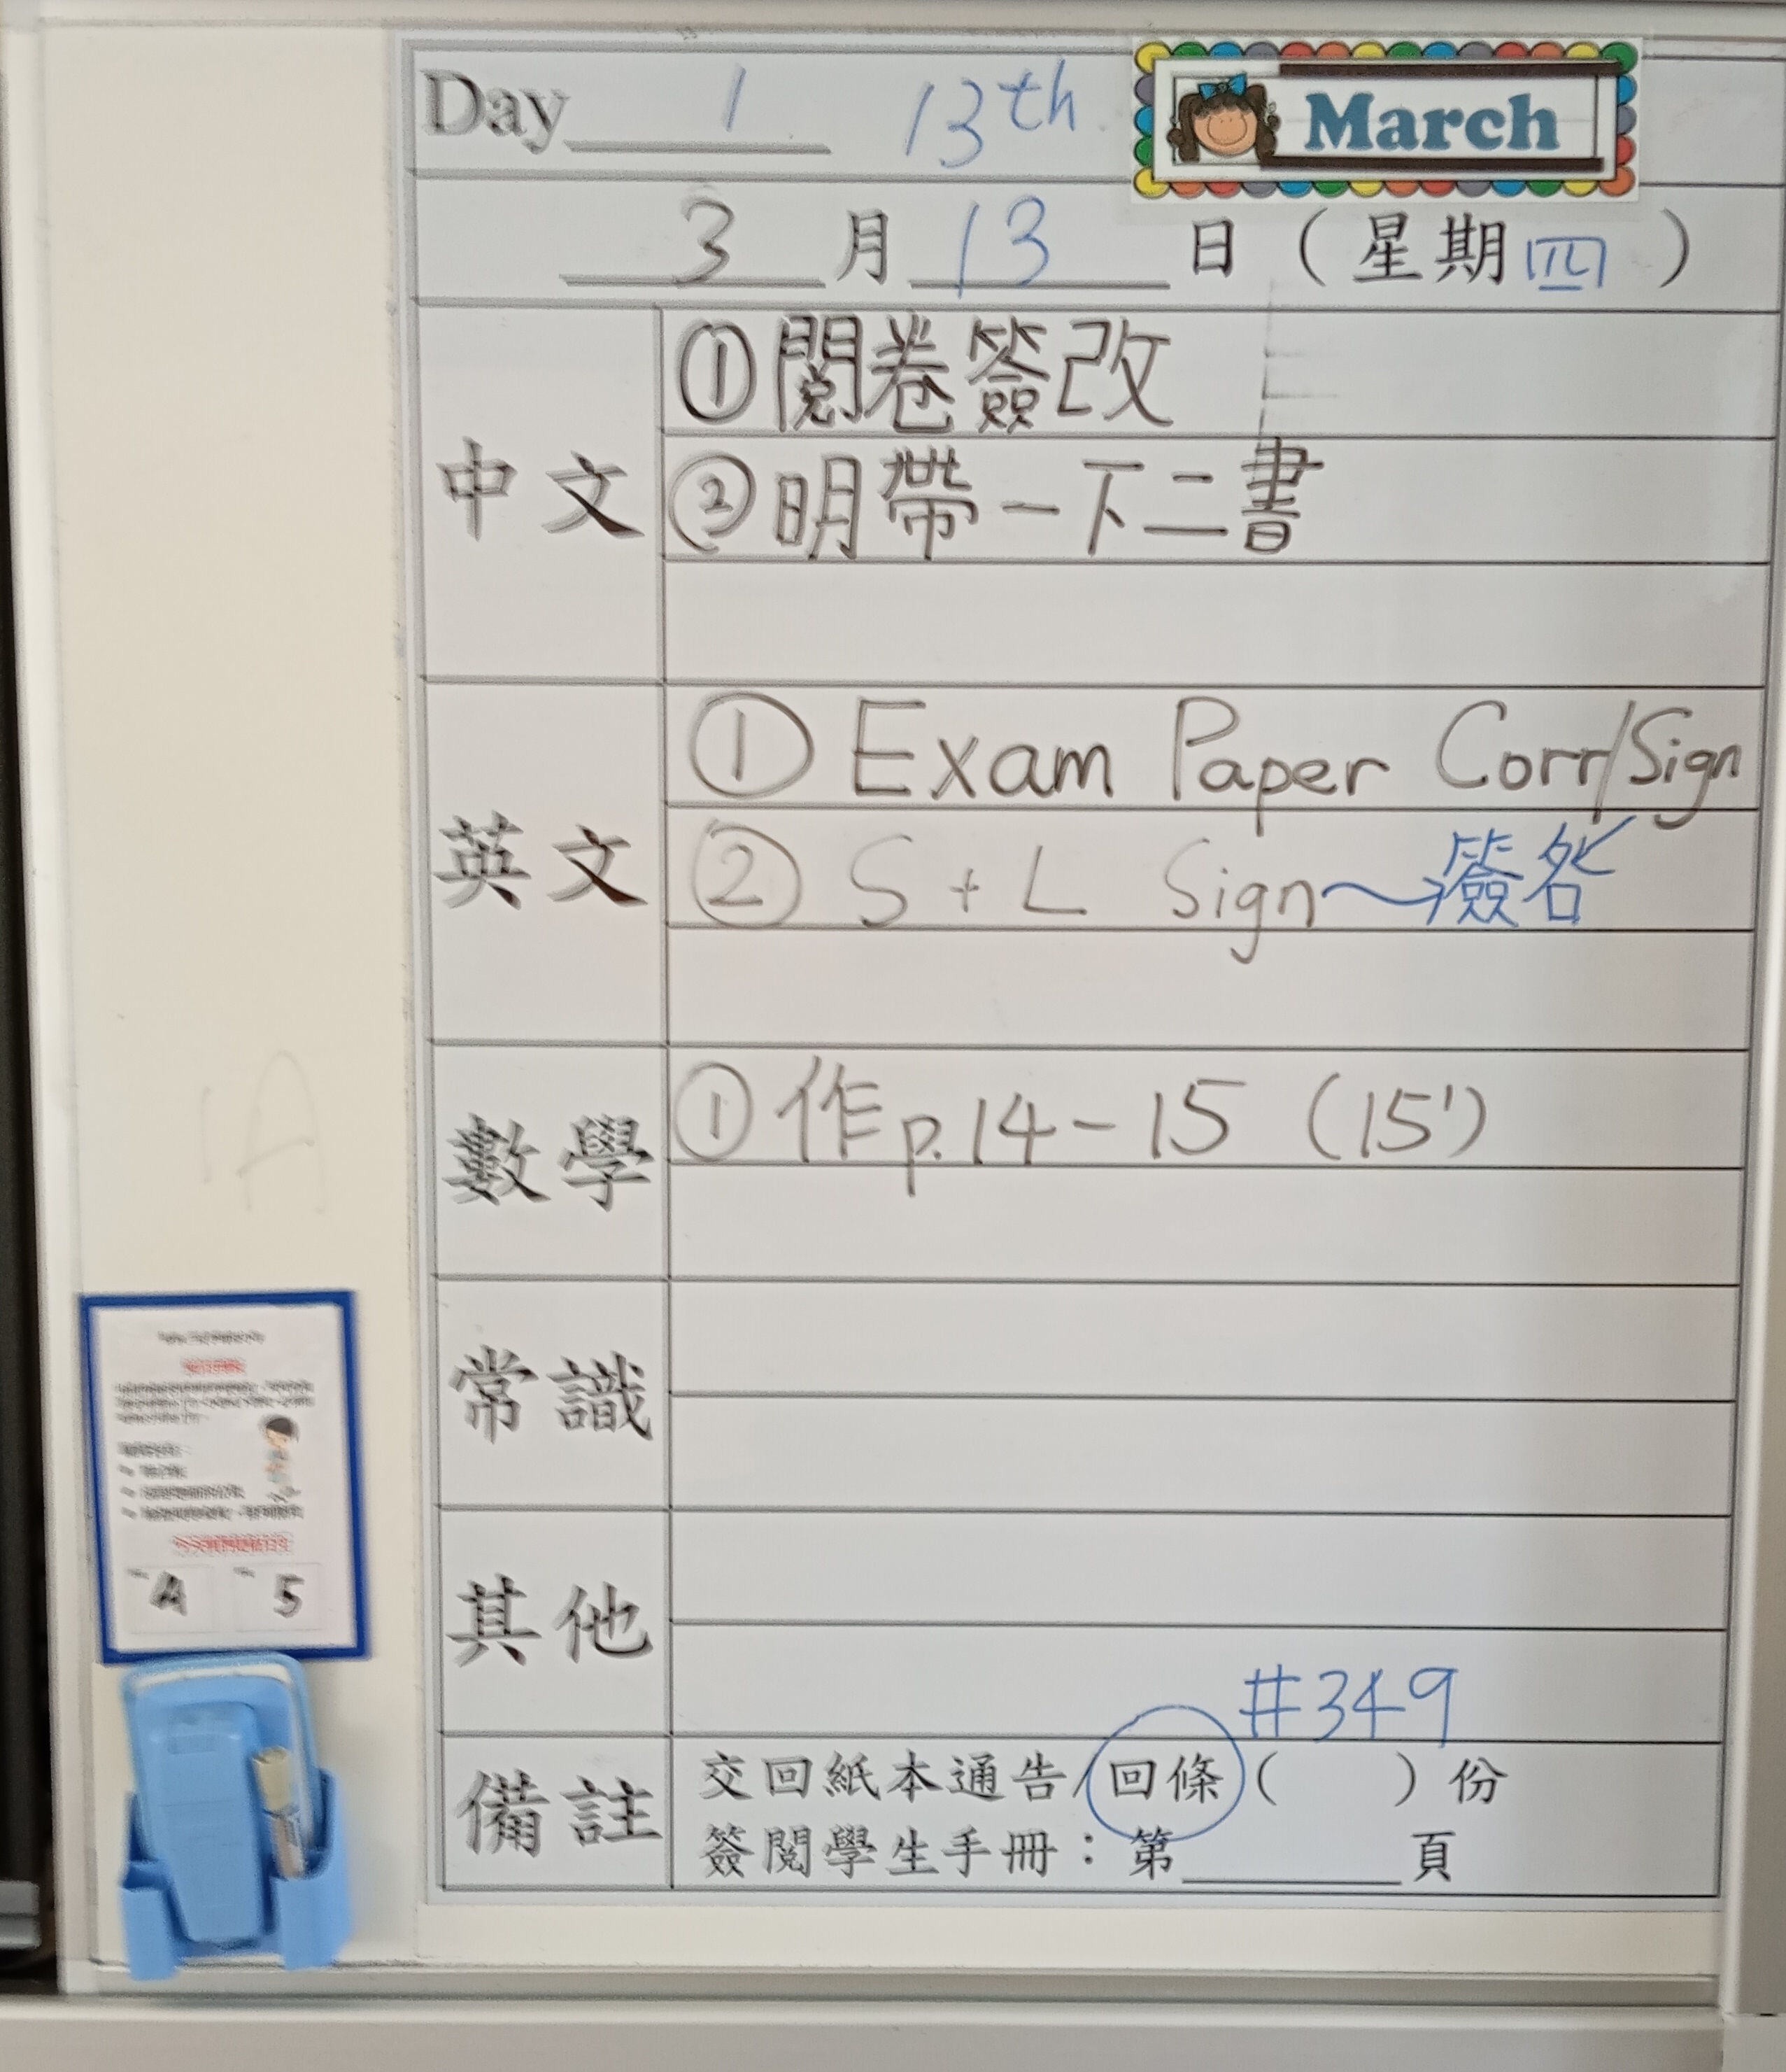 Day 1 13th March
3 月 13 日 （ 星期四 ）
中文
①閱卷簽改
②明帶一下二書
英文
① Exam Paper Corr/Sign
② S + L Sign→簽名
數學
①作p.14-15 (15')
常識
其他
#349
備註
交回紙本通告/回條（ ）份
簽閱學生手冊：第______頁
1A
4 5